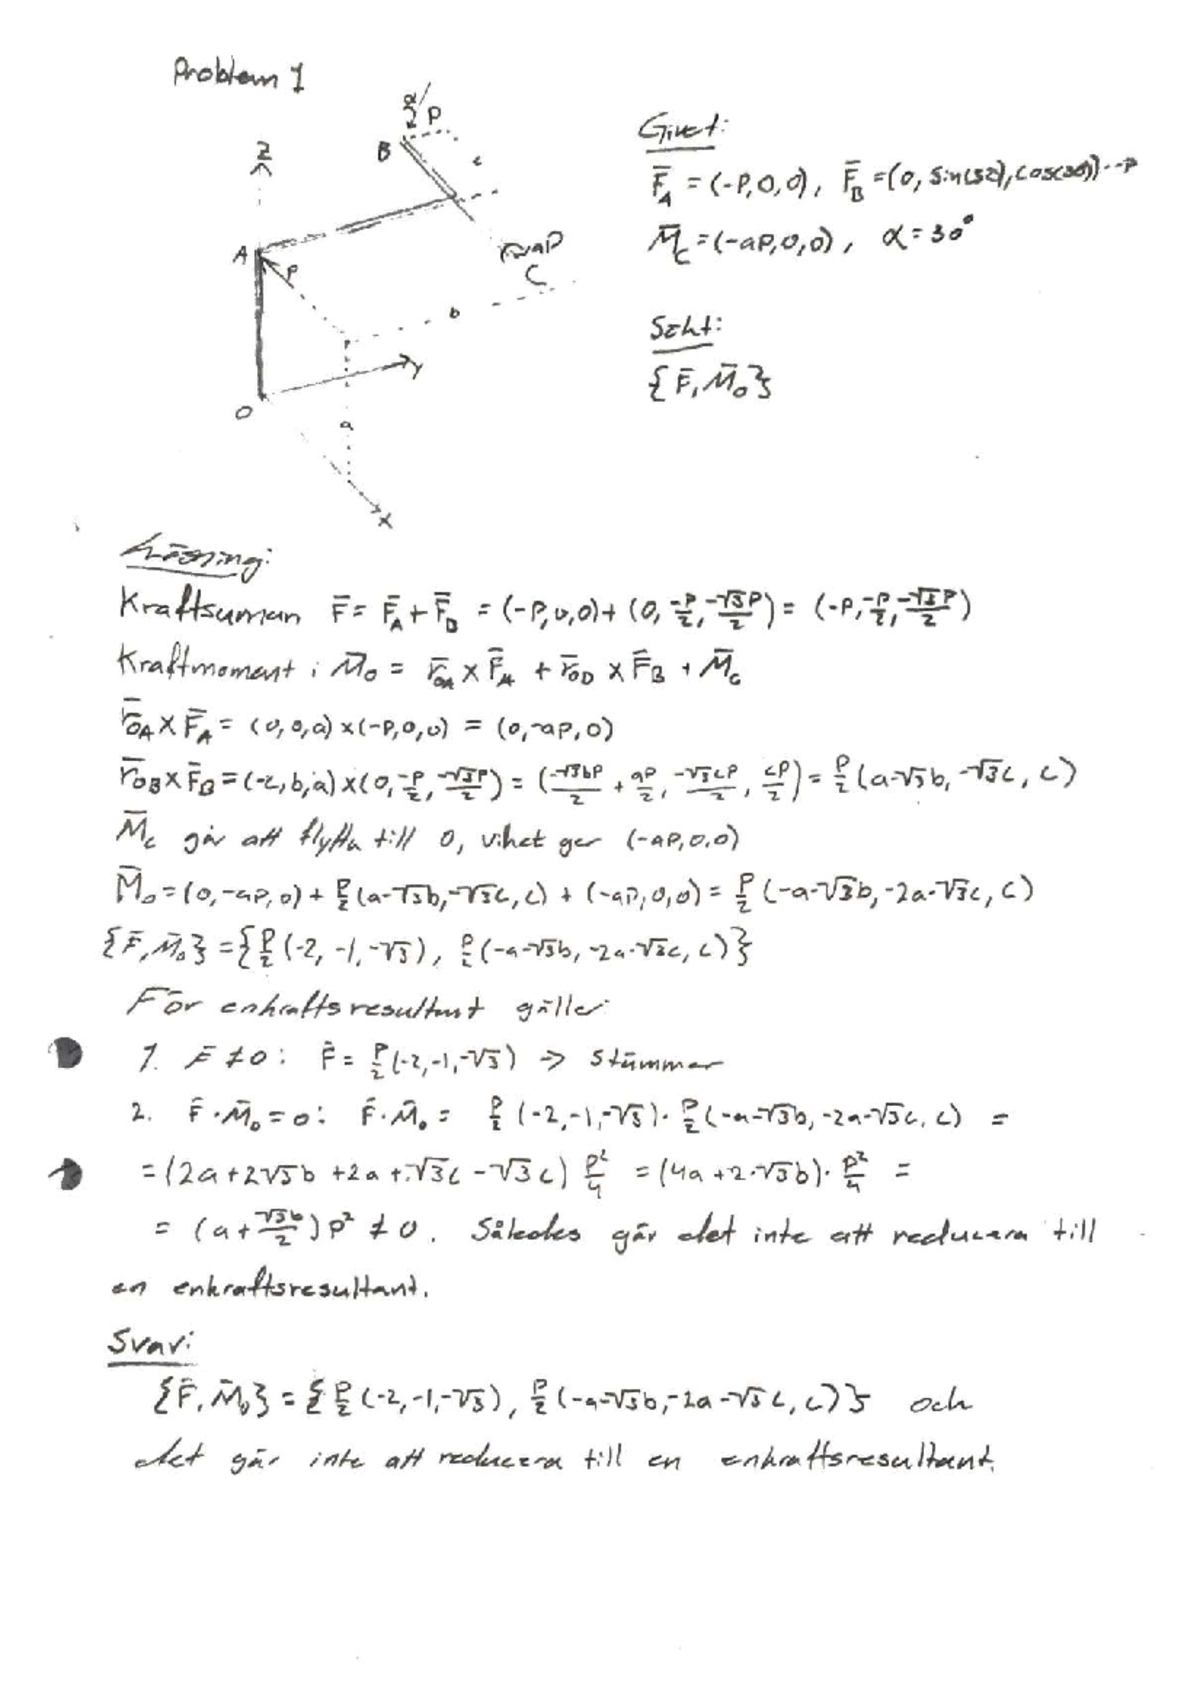 Problem 1
α
P
Z
B
c
A
P
aP
C
b
O
Y
a
X
Givet:
F̄_A = (-P,0,0), F̄_B =(0, sin(30), cos(30))·-P
M̄_C =(-aP,0,0), α=30°
Sökt:
{F̄, M̄_O}
Lösning:
Kraftsuman F̄ = F̄_A + F̄_B = (-P,0,0)+(0, -P/2, -√3P/2) = (-P, -P/2, -√3P/2)
Kraftmoment i M̄_O = r̄_OA × F̄_A + r̄_OB × F̄_B + M̄_C
r̄_OA × F̄_A = (0,0,a)×(-P,0,0) = (0,-aP,0)
r̄_OB × F̄_B =(-c,b,a)×(0, -P/2, -√3P/2) = (-√3bP/2 + aP/2, -√3cP/2, cP/2) = P/2 (a-√3b, -√3c, c)
M̄_C går att flytta till O, vilket ger (-aP,0,0)
M̄_O =(0,-aP,0) + P/2 (a-√3b,-√3c,c) + (-aP,0,0) = P/2 (-a-√3b, -2a-√3c, c)
{F̄, M̄_O} = {P/2 (-2, -1, -√3), P/2 (-a-√3b, -2a-√3c, c)}
För enkraftsresultant gäller:
1. F̄ ≠ 0: F̄ = P/2 (-2,-1,-√3) => Stämmer
2. F̄·M̄_O = 0: F̄·M̄_O = P/2 (-2,-1,-√3)· P/2 (-a-√3b, -2a-√3c, c) =
=(2a+2√3b +2a+√3c -√3c) P²/4 = (4a+2·√3b)· P²/4 =
= (a+ √3b/2)P² ≠ 0. Således går det inte att reducera till
en enkraftsresultant.
Svar:
{F̄, M̄_O} = {P/2 (-2,-1,-√3), P/2 (-a-√3b,-2a-√3c, c)} och
det går inte att reducera till en enkraftsresultant.